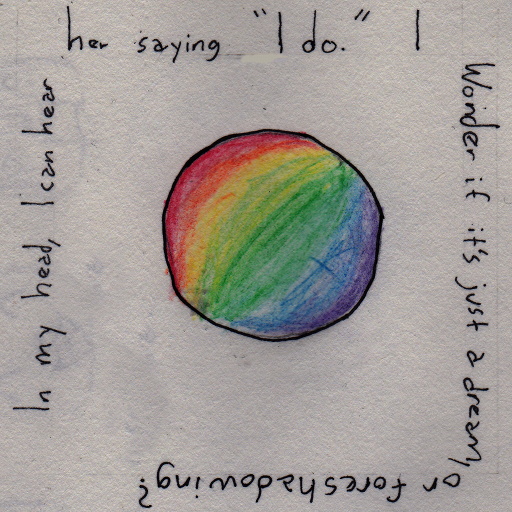 In my head, I can hear
her saying "I do." I
Wonder if it's just a dream,
or foreshadowing?